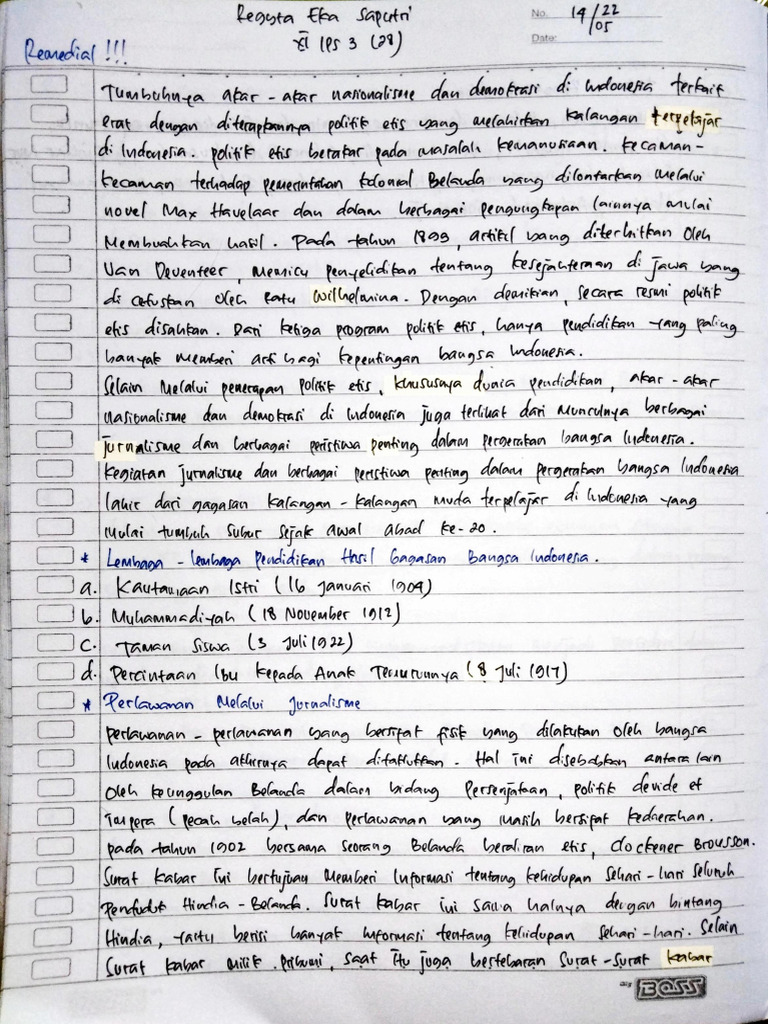 Regysta Eka Saputri
XI IPS 3 (28)
No. 14/22
Date: /05
Remedial !!!
Tumbuhnya akar - akar nasionalisme dan demokrasi di Indonesia terkait
erat dengan diterapkannya politik etis yang melahirkan kalangan terpelajar
di Indonesia. politik etis berakar pada masalah kemanusiaan. kecaman-
kecaman terhadap pemerintahan kolonial Belanda yang dilontarkan melalui
novel Max Havelaar dan dalam berbagai pengungkapan lainnya mulai
Membuahkan hasil. Pada tahun 1899, artikel yang diterbitkan oleh
Van Deventeer, memicu penyelidikan tentang kesejahteraan di jawa yang
di cetuskan oleh ratu Wilhelmina. Dengan demikian, secara resmi politik
etis disahkan. Dari ketiga program politik etis, hanya pendidikan yang paling
banyak memberi arti bagi kepentingan bangsa Indonesia.
Selain Melalui penerapan politik etis, khususnya dunia pendidikan, akar-akar
nasionalisme dan demokrasi di Indonesia juga terlihat dari Munculnya berbagai
jurnalisme dan berbagai peristiwa penting dalam pergerakan bangsa Indonesia.
kegiatan jurnalisme dan berbagai peristiwa penting dalam pergerakan bangsa Indonesia
lahir dari gagasan kalangan-kalangan muda terpelajar di Indonesia yang
mulai tumbuh subur sejak awal abad ke-20.
* Lembaga - lembaga Pendidikan Hasil Gagasan Bangsa Indonesia.
a. Kautamaan Istri (16 Januari 1904)
b. Muhammadiyah (18 November 1912)
c. Taman Siswa (3 Juli 1922)
d. Percintaan Ibu kepada Anak Temurunnya (8 Juli 1917)
* Perlawanan Melalui Jurnalisme
perlawanan - perlawanan yang bersifat fisik yang dilakukan oleh bangsa
Indonesia pada akhirnya dapat ditaklukkan. Hal ini disebabkan antara lain
oleh keunggulan Belanda dalam bidang Persenjataan, politik devide et
Impera (pecah belah), dan perlawanan yang masih bersifat kedaerahan.
pada tahun 1902 bersama seorang Belanda beraliran etis, clockener Brousson.
Surat kabar ini bertujuan memberi Informasi tentang kehidupan sehari-hari seluruh
Penduduk Hindia-Belanda. Surat kabar ini sama halnya dengan bintang
Hindia, yaitu berisi banyak informasi tentang kehidupan sehari-hari. Selain
Surat kabar milik pribumi, saat itu juga bertebaran Surat-surat kabar
BOSS